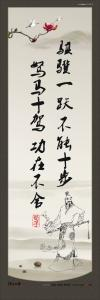 骐骥一跃不能十步
驽马十驾功在不舍
荀子